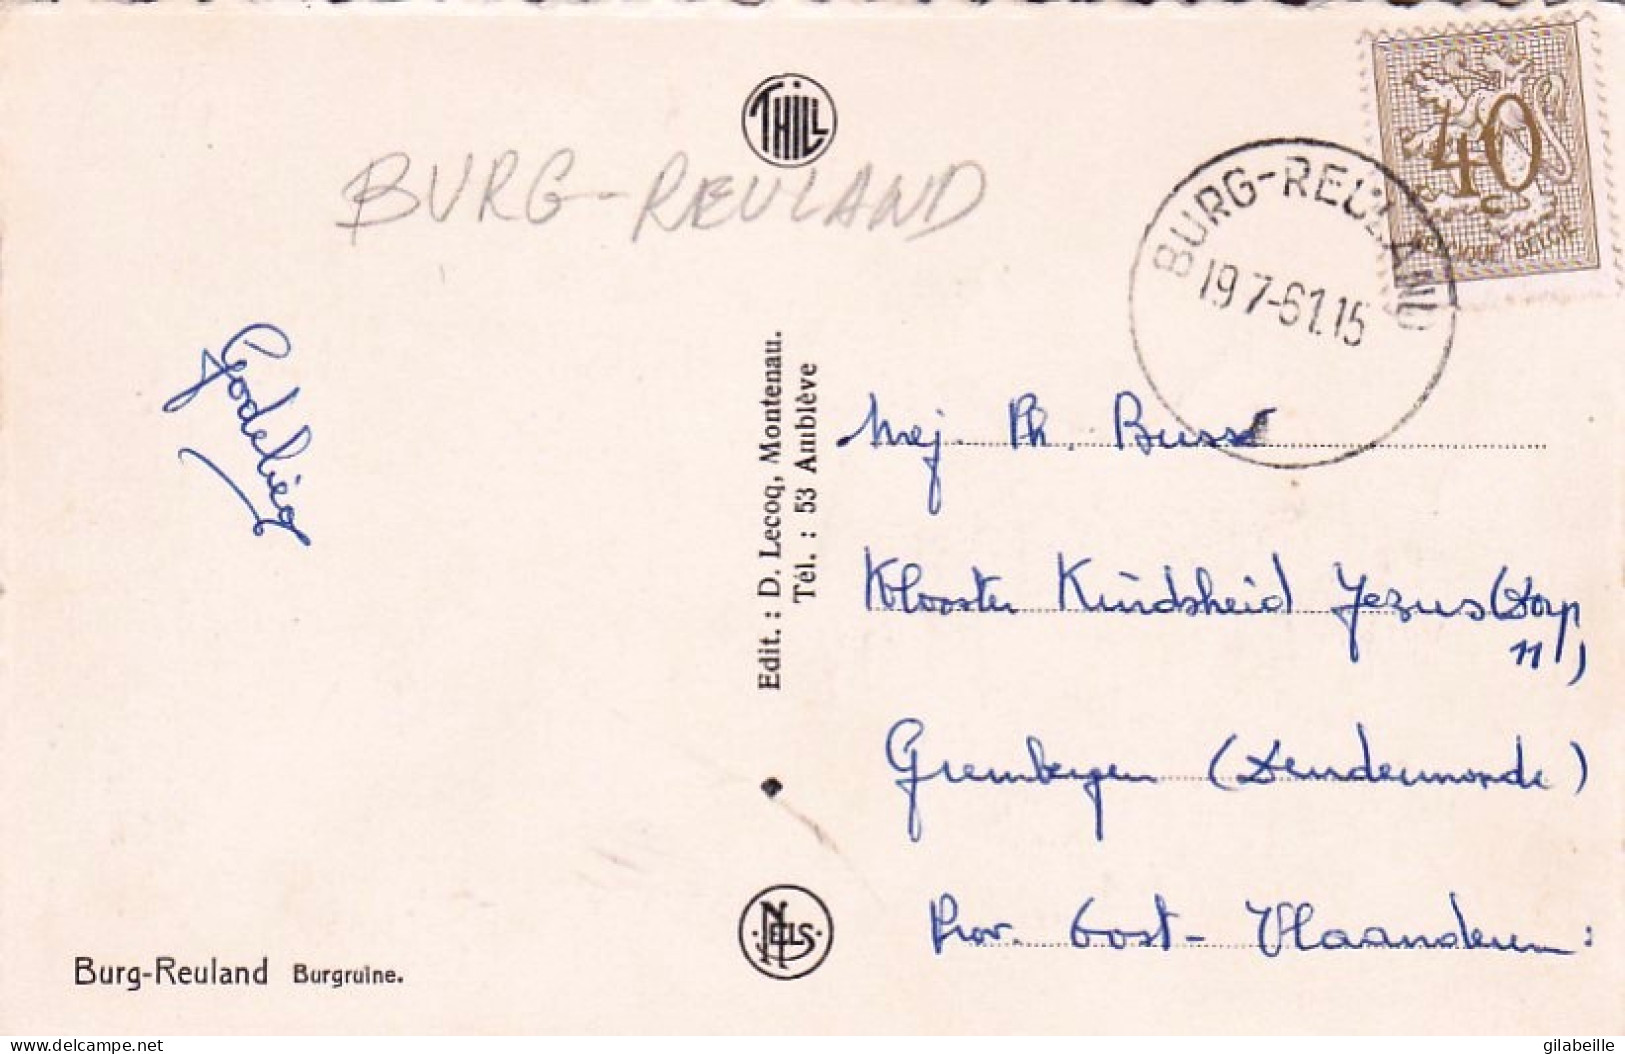 THILL
BURG-REULAND
40
BELGIQUE BELGIE
BURG-REULAND
19 7-61.15
Godelieg
Edit. : D. Lecoq, Montenau.
Tél. : 53 Amblève
Mej. Ph. Buss
Klooster Kindsheid Jezus (Dorp
11)
Grembergen (Dendermonde)
Prov. Oost-Vlaanderen:
NELS
Burg-Reuland Burgruine.
delcampe.net
gilabeille